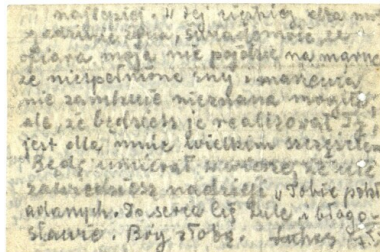 najlepiej. W tej ciężkiej dla mnie
godzinie życia, świadomość, że
ofiara moja nie pójdzie na marne
że niespełnione sny i marzenia
nie zamknie nieznana mogiła,
ale, że będziesz je realizował Ty,
jest dla mnie wielkim szczęściem
Będę umierał w wierze, że nie
zawiedziesz nadziei w Tobie pokł
adanych. Do serca Cię tulę i błogo-
sławię. Bóg z Tobą.